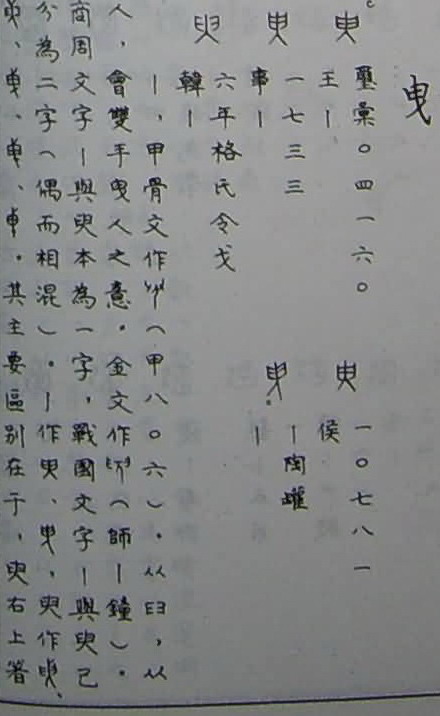 曳
璽彙〇四一六〇
王—
一七三三
事—
六年格氏令戈
韓—
一〇七八一
侯
—陶罐
—
—，甲骨文作（甲八〇六）。从𦥑，从
人，會雙手曳人之意。金文作（師—鐘）。
商周文字—與臾本為一字，戰國文字—與臾已
分為二字（偶而相混）。—作曳、曳，臾作
、曳、、。其主要區別在于，臾右上著